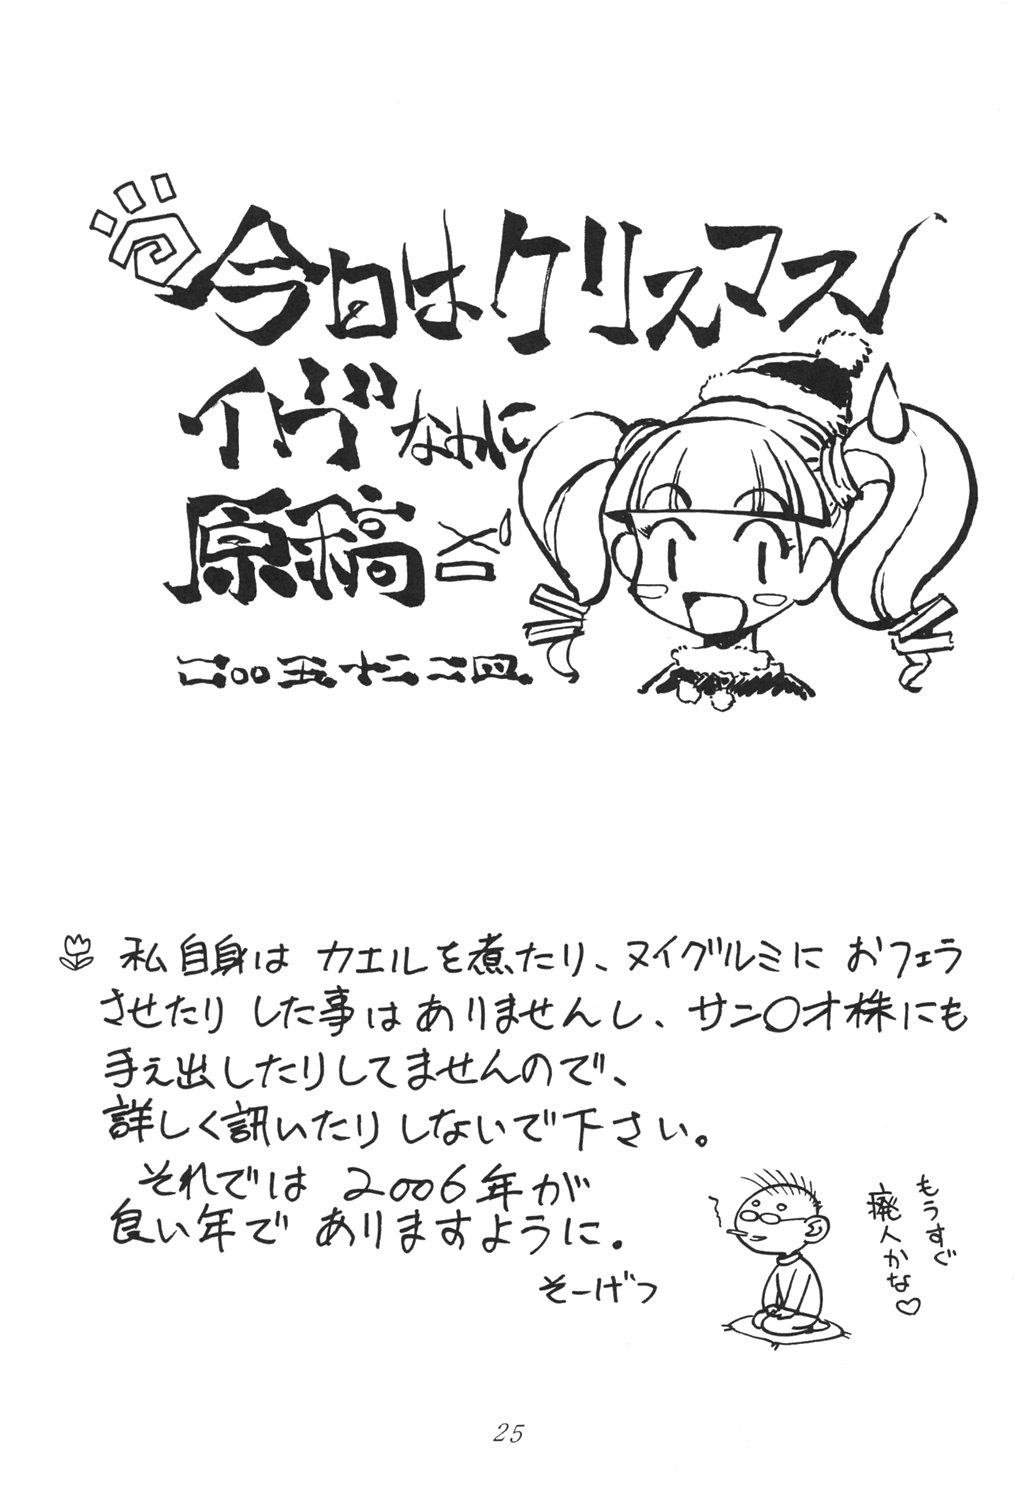 今日はクリスマス
イヴなのに
原稿
二〇〇五 十二 二四
私自身は カエルを煮たり、ヌイグルミに おフェラ
させたり した事は ありませんし、サン〇オ株にも
手え出したりしてませんので、
詳しく訊いたり しないで下さい。
それでは 2006年が
良い年で ありますように.
そーげつ
もうすぐ
廃人かな♡
25